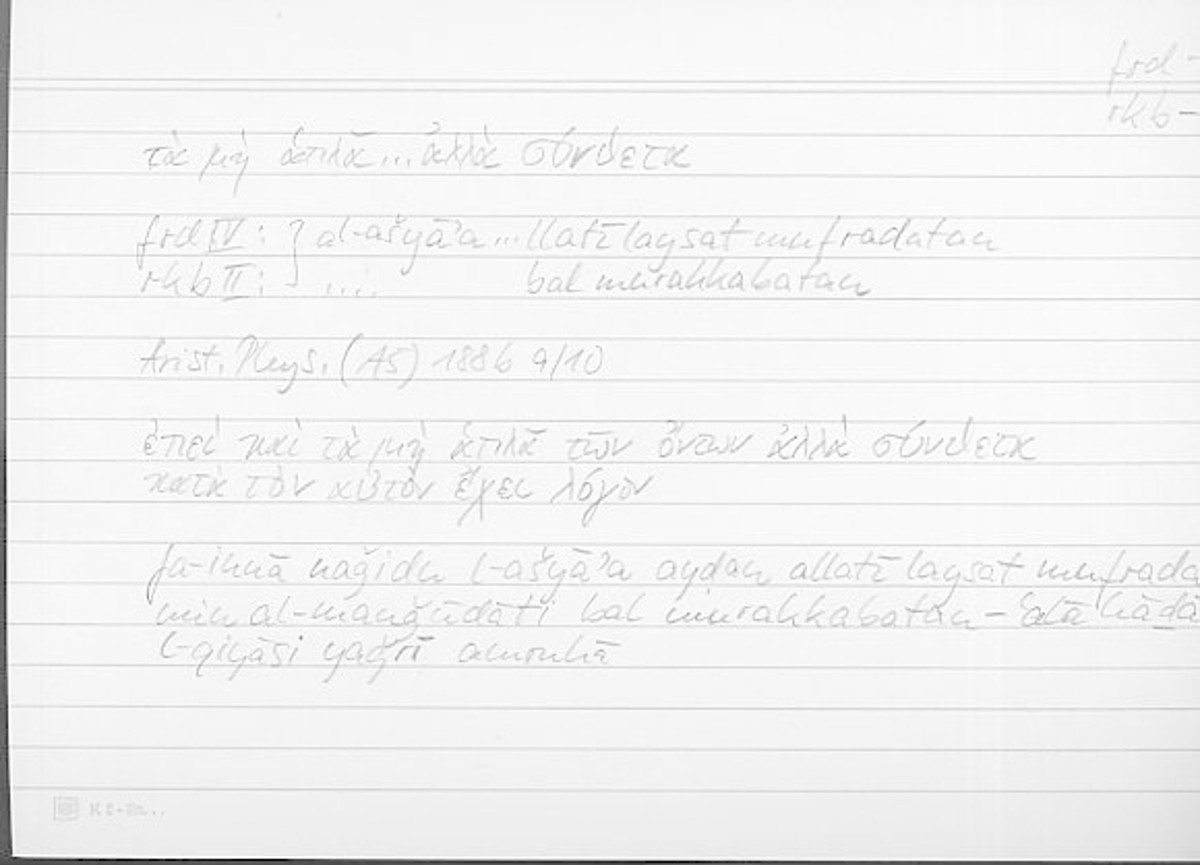 frd -
rkb -
τὰ μὴ ἁπλᾶ ... ἀλλὰ σύνθετα
frd IV : } al-ašyāʾa ... llatī laysat mufradatan
rkb II : } .... bal murakkabatan
Arist. Phys. (A5) 188b 9/10
ἐπεὶ καὶ τὰ μὴ ἁπλᾶ τῶν ὄντων ἀλλὰ σύνθετα
κατὰ τὸν αὐτὸν ἔχει λόγον
fa-innā naǧidu l-ašyāʾa ayḍan allatī laysat mufrada
min al-mawǧūdāti bal murakkabatan – ʿalā hāḏā
l-qiyāsi yaǧrī amruhā